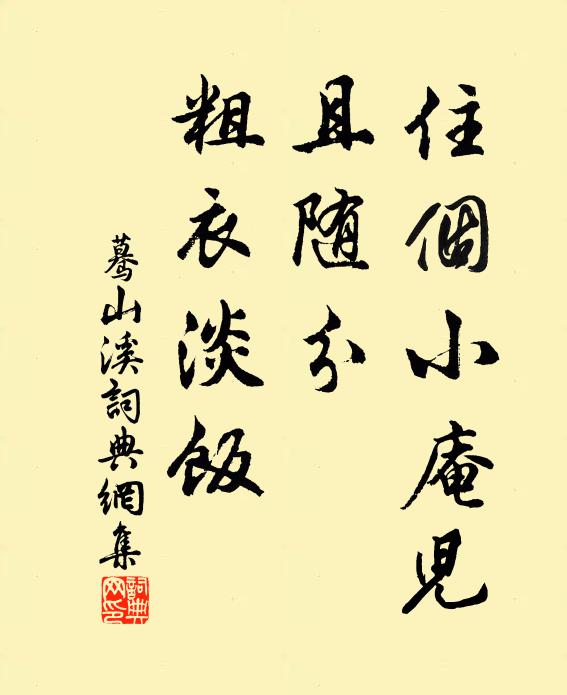 住個小庵児
且随分
粗衣淡飯
蓦山溪詞典網集
詞典网印